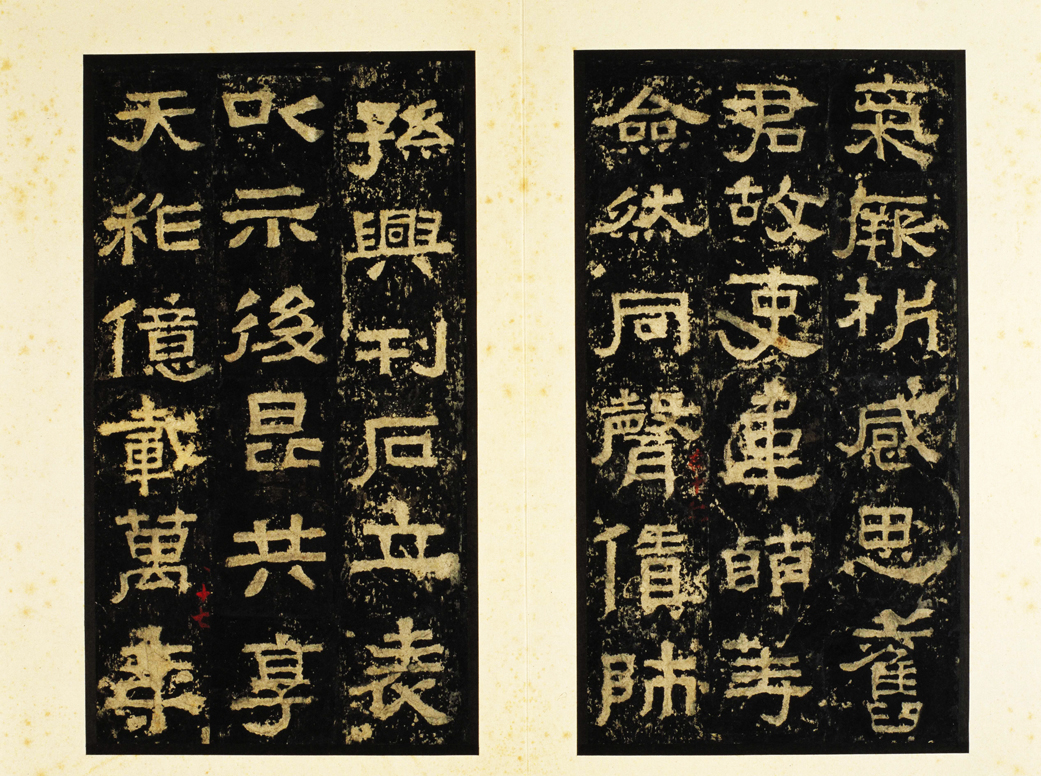 氣厥析感思舊
君故吏韋萌等
僉然同聲賃師
孫興刊石立表
以示後昆共享
天祚億載萬年